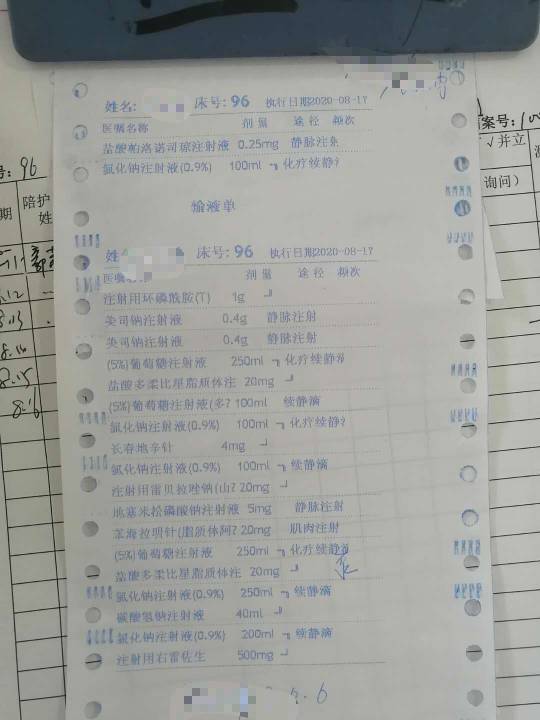 姓名: 床号: 96 执行日期2020-08-17
医嘱名称 剂量 途径 频次
盐酸帕洛诺司琼注射液 0.25mg 静脉注射
氯化钠注射液(0.9%) 100ml ┐化疗续静
输液单
床号: 96 执行日期2020-08-17
医嘱名称 剂量 途径 频次
注射用环磷酰胺(T) 1g ┘
美司钠注射液 0.4g 静脉注射
美司钠注射液 0.4g 静脉注射
(5%)葡萄糖注射液 250ml ┐化疗续静
盐酸多柔比星脂质体注 20mg ┘
(5%)葡萄糖注射液(多? 100ml 续静滴
氯化钠注射液(0.9%) 100ml ┐化疗续静
长春地辛针 4mg ┘
氯化钠注射液(0.9%) 100ml ┐续静滴
注射用雷贝拉唑钠(山? 20mg ┘
地塞米松磷酸钠注射液 5mg 静脉注射
苯海拉明针(脂质体阿? 20mg 肌肉注射
(5%)葡萄糖注射液 250ml ┐化疗续静
盐酸多柔比星脂质体注 20mg ┘
氯化钠注射液(0.9%) 250ml ┐续静滴
碳酸氢钠注射液 40ml ┘
氯化钠注射液(0.9%) 200ml ┐续静滴
注射用右雷佐生 500mg ┘
号: 96
期 陪护
姓
8.15
8.16
案号:
√并立
询问)